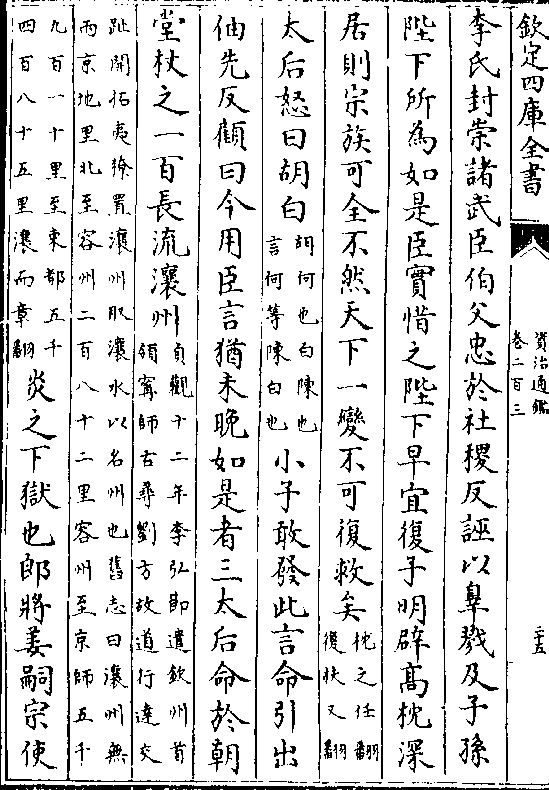 欽定四庫全書
資治通鑑
卷二百三
二十五
李氏封崇諸武臣伯父忠於社稷反誣以辠戮及子孫
陛下所為如是臣實惜之陛下早宜復子明辟髙枕深
居則宗族可全不然天下一變不可復救矣枕之任翻復扶又翻
太后怒曰胡白胡何也白陳也言何等陳白也小子敢發此言命引出
伷先反顧曰今用臣言猶未晚如是者三太后命於朝
堂杖之一百長流瀼州貞觀十二年李弘節遣欽州首領甯師古尋劉方故道行達交
趾開拓夷獠置瀼州取瀼水以名州也舊志曰瀼州無兩京地里北至容州二百八十二里容州至京師五千
九百一十里至東都五千四百八十五里瀼而章翻炎之下獄也郎將姜嗣宗使